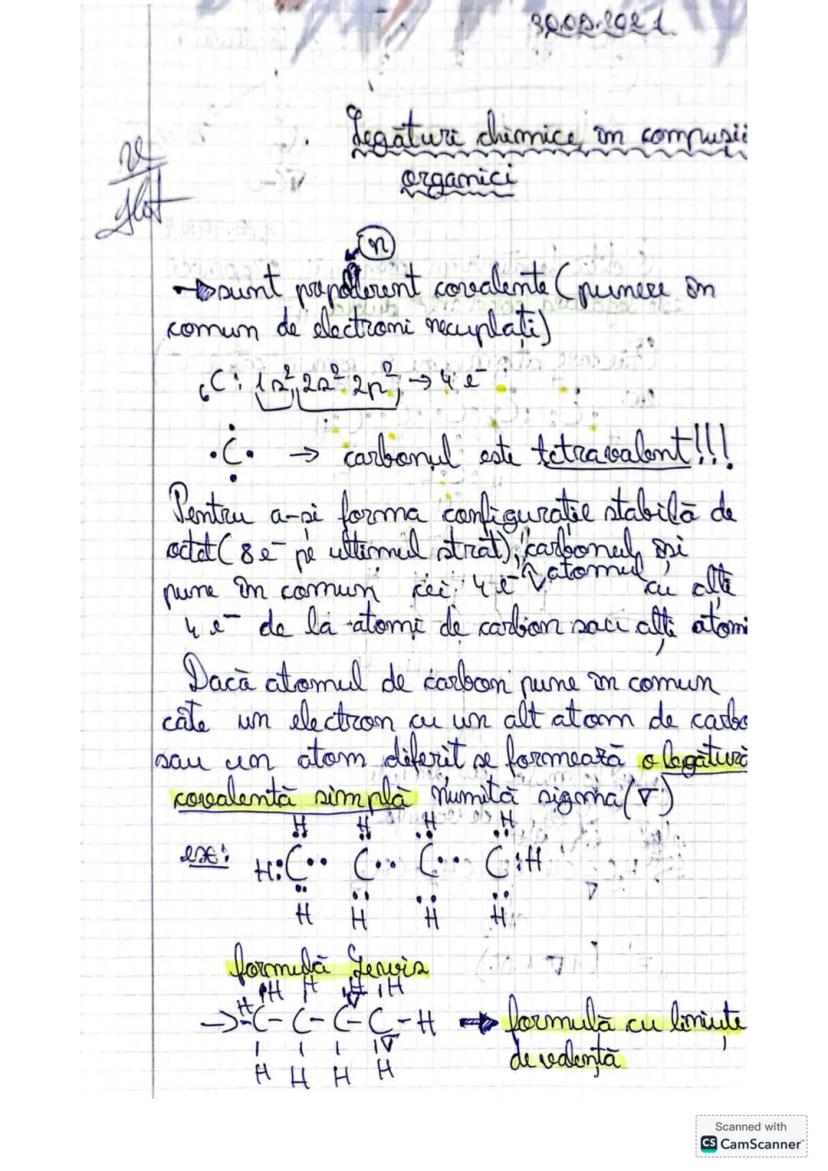 30.09.2021.
Legături chimice în compușii
organici
n
→ sunt preponderent covalente (punere în
comun de electroni necuplați)
₆C: 1s² 2s² 2p² → 4 e⁻
·C· → carbonul este tetravalent!!!
Pentru a-și forma configurație stabilă de
octet (8 e⁻ pe ultimul strat), carbonul își
pune în comun cei 4 e⁻ atomul cu alți
4 e⁻ de la atomi de carbon sau alți atomi
Dacă atomul de carbon pune în comun
câte un electron cu un alt atom de carbo
sau un atom diferit se formează o legătură
covalentă simplă numită sigma (∇)
H H H H
ex: H:C·· C·· C·· C:H
H H H H
formulă Lewis
H H H H H
→ C - C - C - C - H → formulă cu liniuțe
H H H H de valență
Scanned with
CS CamScanner